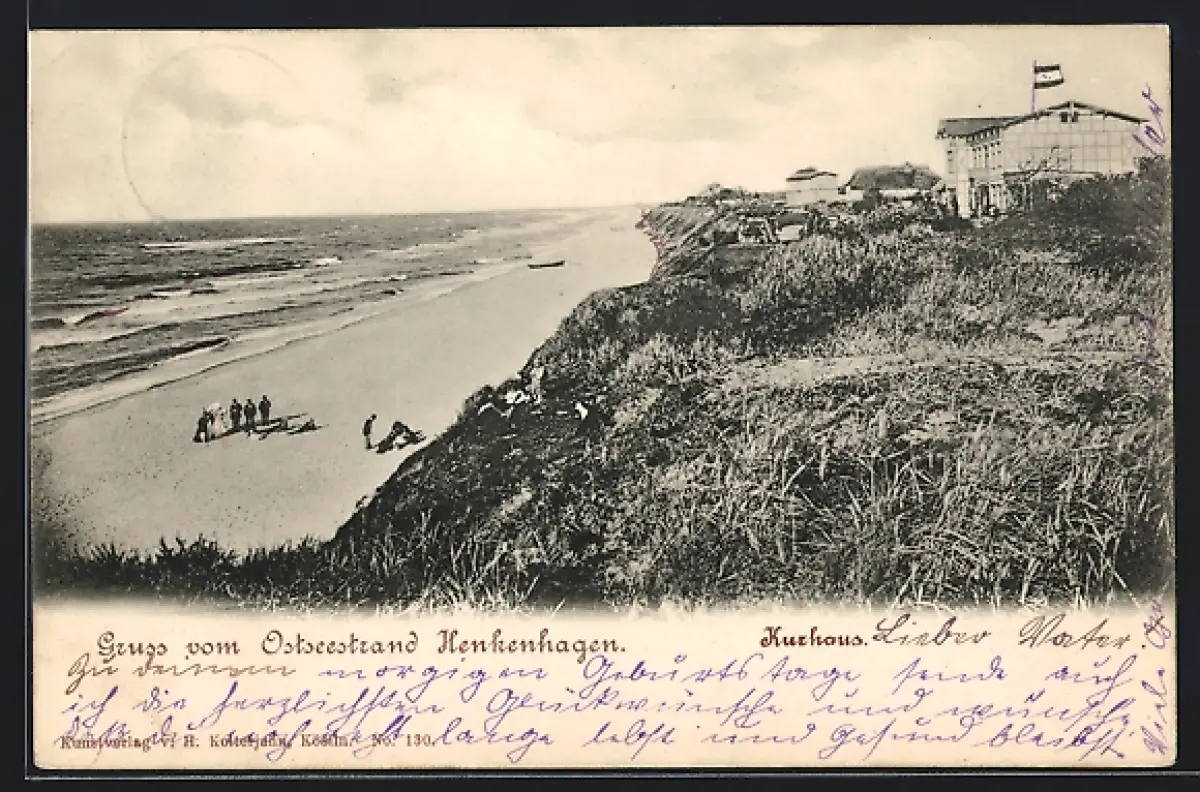 Gruss vom Ostseestrand Henkenhagen.
Kurhaus.
Lieber Vater
Zu deinem morgigen Geburtstage sende auch
ich die herzlichsten Glückwünsche und wünsche
daß du noch recht lange lebst und gesund bleibst
Kunstverlag v. H. Kottersjahn, Köslin. No. 130.
Viele